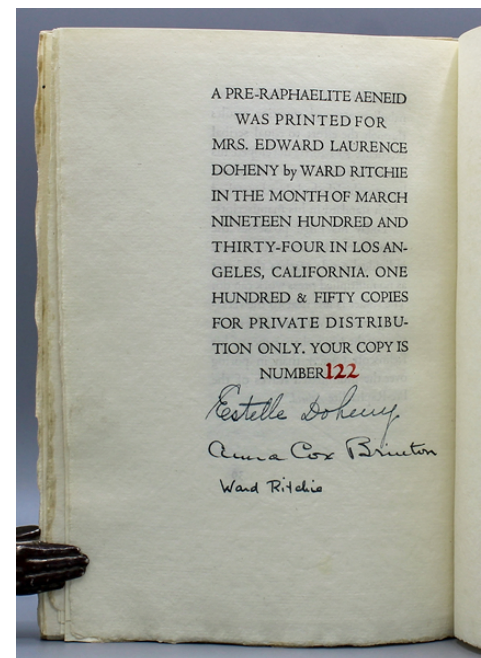 A PRE-RAPHAELITE AENEID
WAS PRINTED FOR
MRS. EDWARD LAURENCE
DOHENY by WARD RITCHIE
IN THE MONTH OF MARCH
NINETEEN HUNDRED AND
THIRTY-FOUR IN LOS AN-
GELES, CALIFORNIA. ONE
HUNDRED & FIFTY COPIES
FOR PRIVATE DISTRIBU-
TION ONLY. YOUR COPY IS
NUMBER 122
Estelle Doheny
Anna Cox Brinton
Ward Ritchie